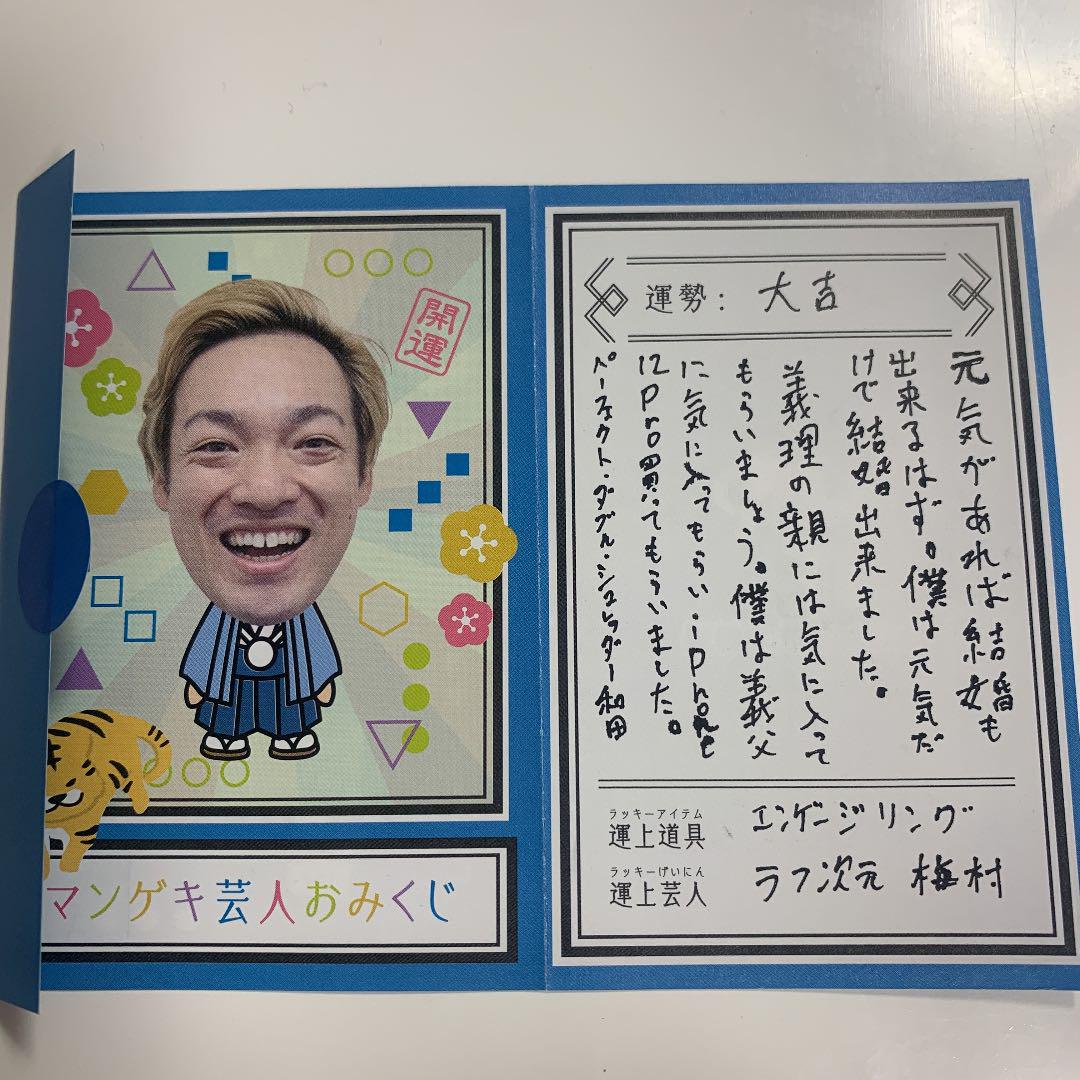 開運
マンゲキ芸人おみくじ
運勢: 大吉
元気があれば結婚も
出来るはず。僕は元気だ
けで結婚出来ました。
義理の親には気に入って
もらいましょう。僕は義父
に気に入ってもらい、iPhone
12Pro買ってもらいました。
パーフェクト・ダブル・シュレッダー和田
ラッキーアイテム
運上道具 エンゲージリング
ラッキーげいにん
運上芸人 ラフ次元 梅村